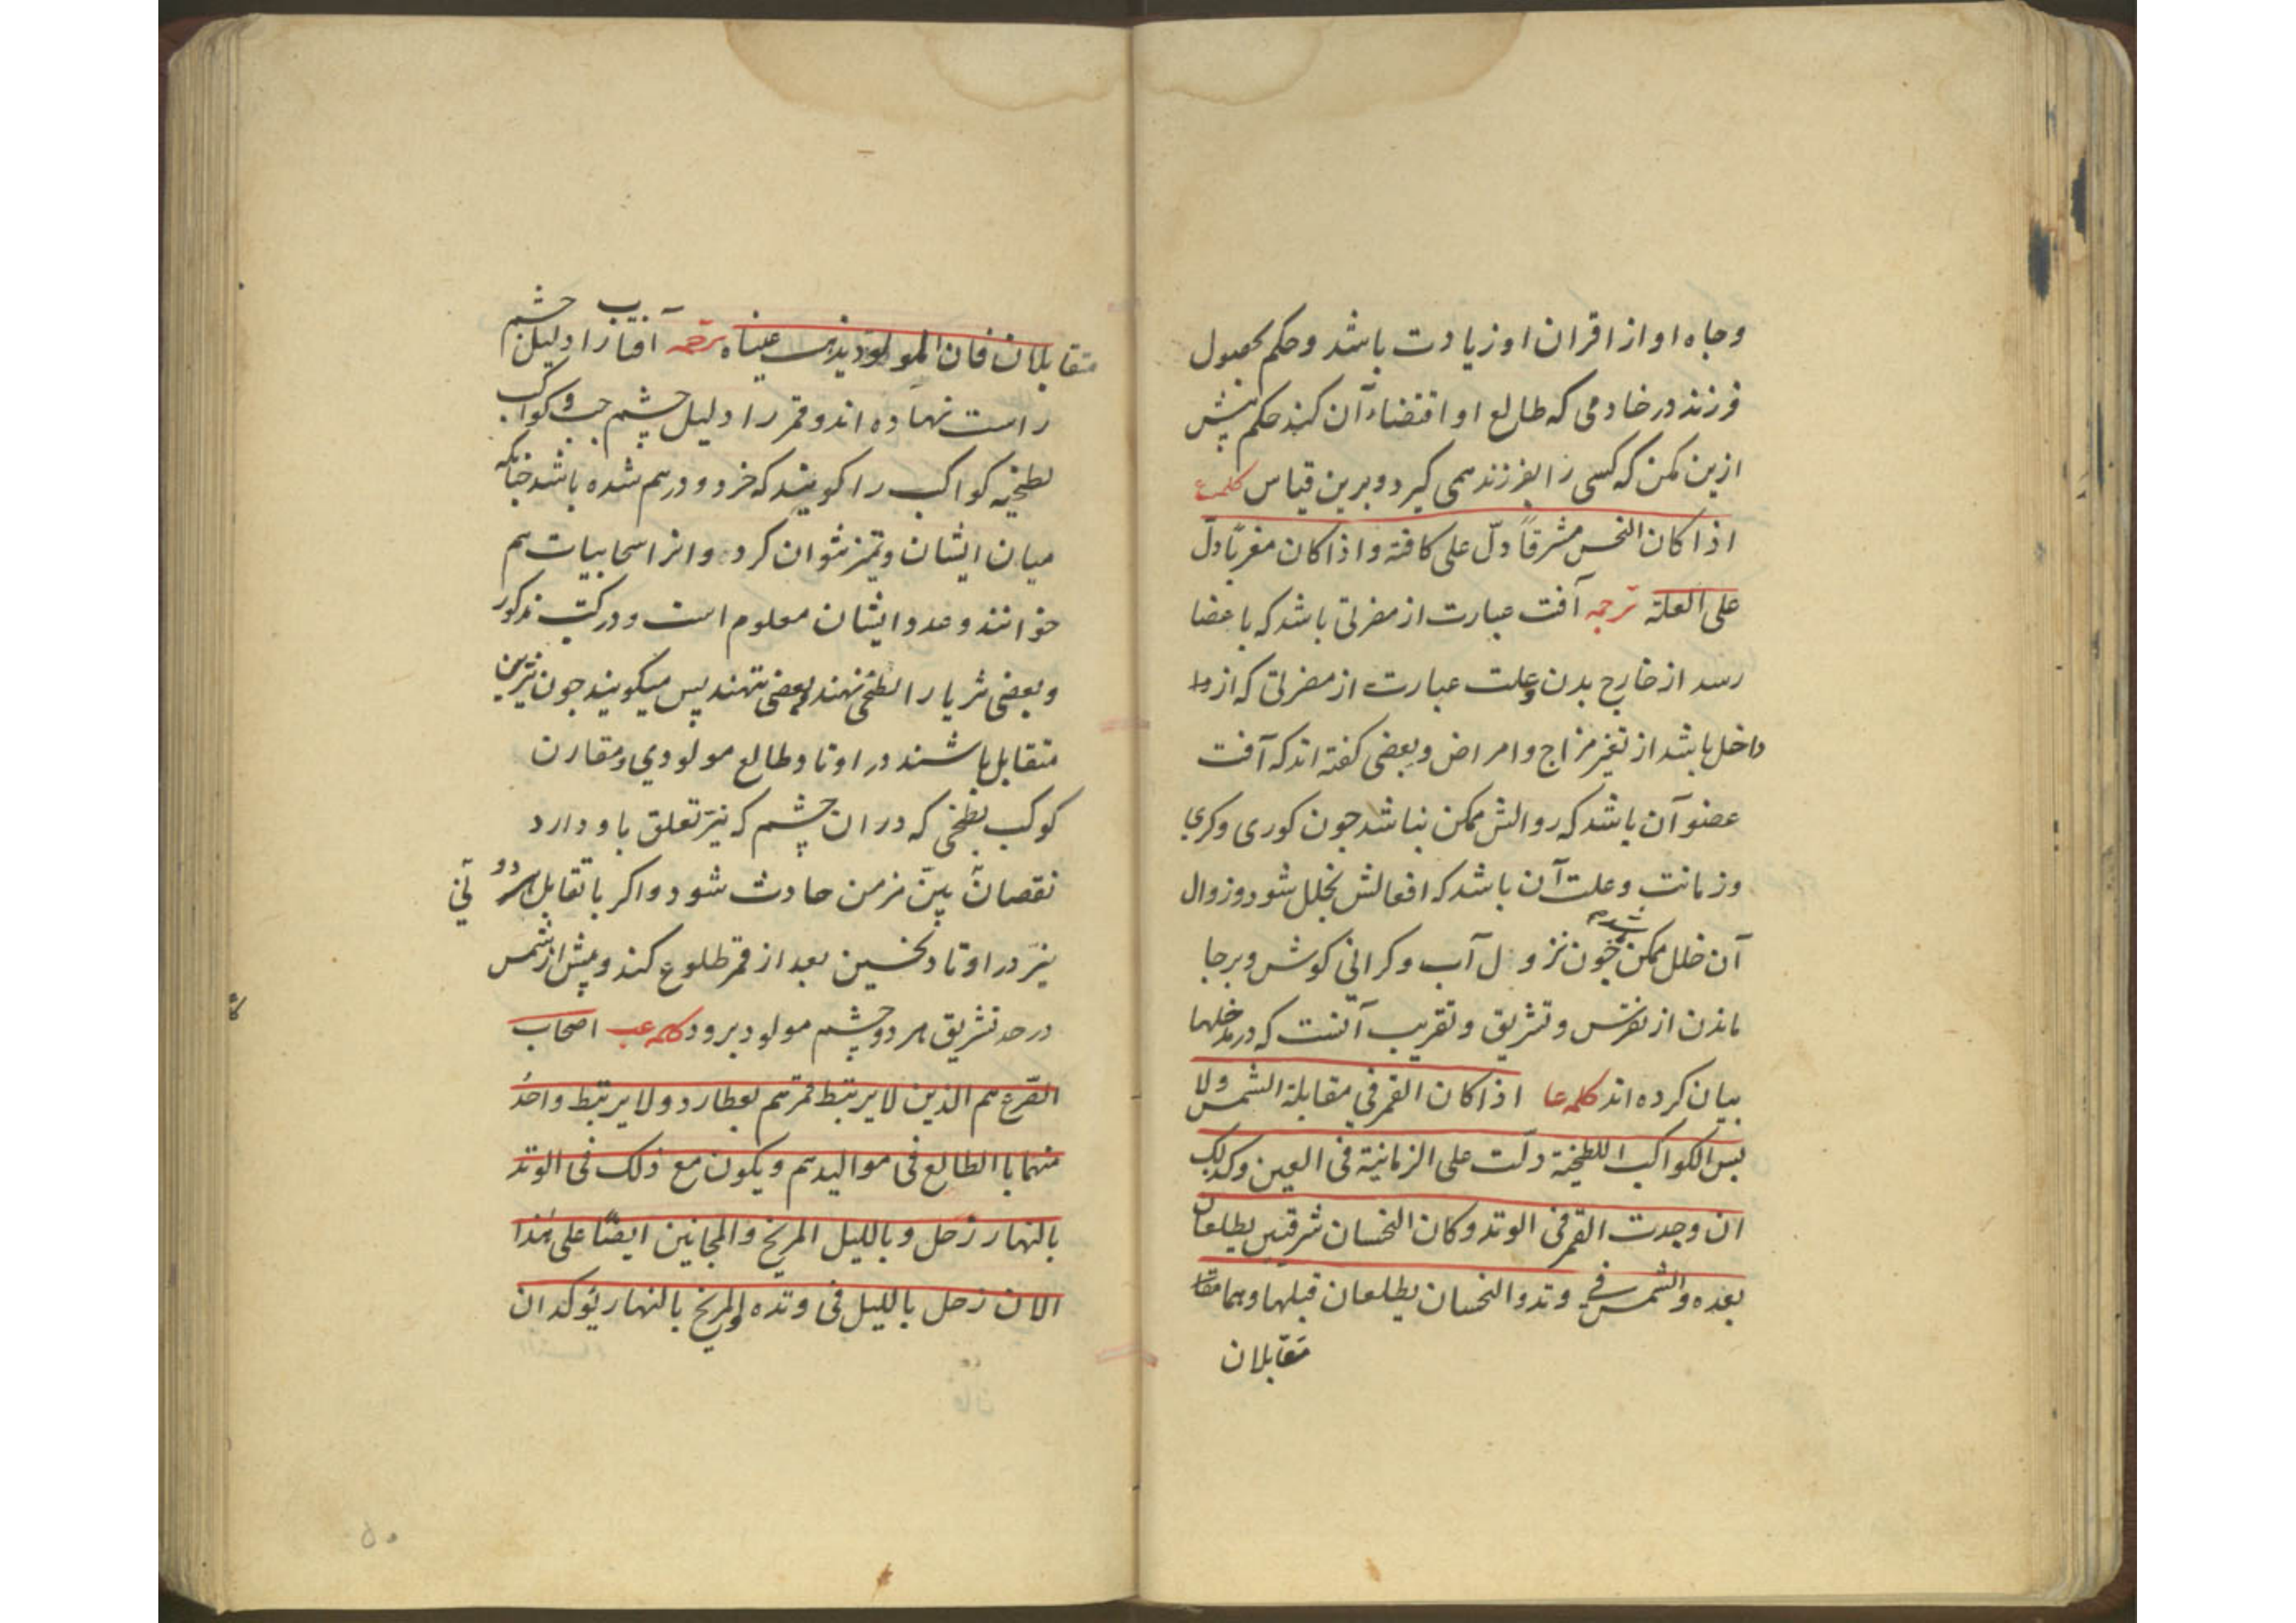 وجاه او از اقران او زیادت باشد وحکم بحصول
فرزند در خادمی که طالع او اقتضاء آن کند حکم پیش
ازین مکن که کسی را بفرزند همی کیرد و برین قیاس کلمه ع
اذا کان النحس مشرقاً دلّ علی کافته واذا کان مغرباً دلّ
علی العلة ترجمه آفت عبارت از مضرتی باشد که باعضا
رسد از خارج بدن وعلت عبارت از مضرتی که از
داخل باشد از تغیر مزاج وامراض وبعضی کفته اند که آفت
عضو آن باشد که زوالش ممکن نباشد جون کوری وکری
وزمانت وعلت آن باشد که افعالش بخلل شود وزوال
آن خلل ممکن جون نزول آب وکرانی کوش وبرجا
ماندن از نقرس وتشریق وتغریب آنست که در مدخلها
بیان کرده اند کلمه عا اذا کان القمر فی مقابلة الشمس ولا
بس الکواکب اللطخیة دلّت علی الزمانیة فی العین وکذلک
ان وجدت القمر فی الوتد وکان النحسان شرقیین یطلعان
بعده والشمس فی وتد والنحسان یطلعان قبلها وهما
متقابلان
متقابلان فان المولود یذهب عیناه ترجمه آفتاب را دلیل چشم
راست نهاده اند وقمر را دلیل چشم چپ وکواکب
لطخیه کواکب را کویند که خرد و درهم شده باشد چنانکه
میان ایشان وتمیز نتوان کرد وانرا سحابیات هم
خوانند وعدد ایشان معلوم است ودر کتب مذکور
وبعضی ثریا را لطخی نهند وبعضی ننهند پس میکویند جون نیرین
متقابل باشند در اوتاد طالع مولودی ومقارن
کوکب لطخی که در ان چشم که نیّر تعلق باو دارد
نقصان بیّن مزمن حادث شود واکر با تقابل هر دو
نیّر در اوتاد نحسین بعد از قمر طلوع کند وپیش از شمس
در حد تشریق هر دو چشم مولود برود کلمه عب اصحاب
القرع هم الذین لا یرتبط قمرهم بعطارد ولا یرتبط واحدُ
منهما بالطالع فی موالیدهم ویکون مع ذلک فی الوتد
بالنهار زحل وباللیل المریخ والمجانین ایضًا علی هذا
الا ان زحل باللیل فی وتده والمریخ بالنهار یؤکد ان
۵۰